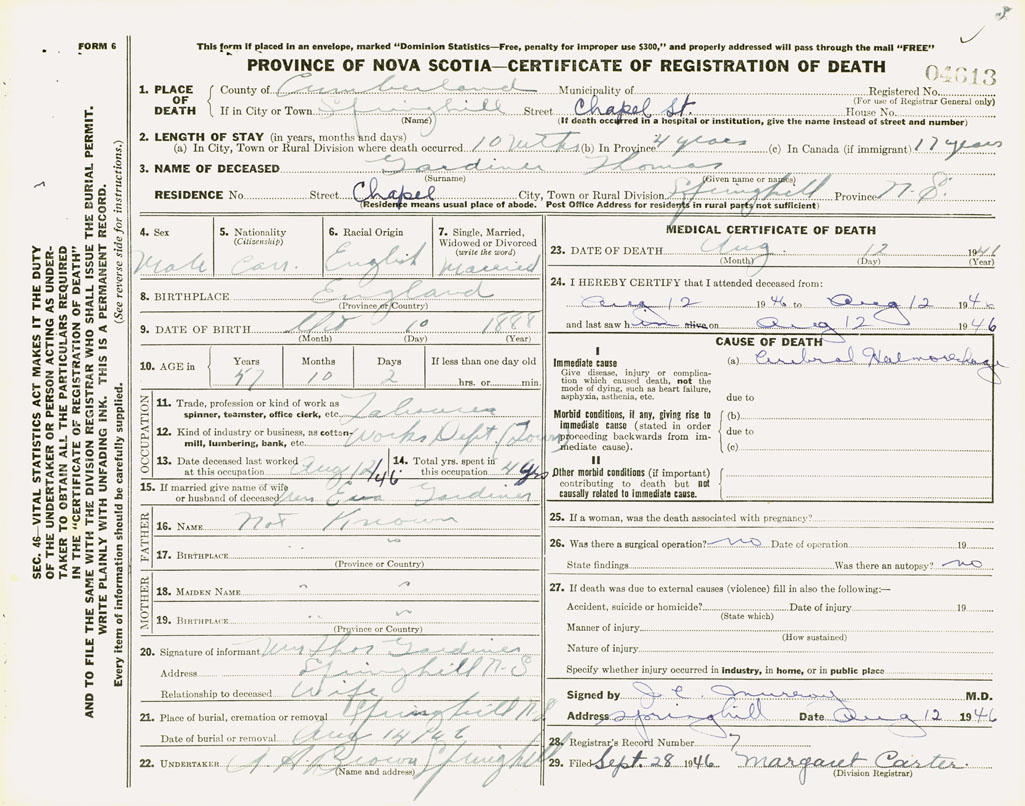 FORM 6
This form if placed in an envelope, marked "Dominion Statistics—Free, penalty for improper use $300," and properly addressed will pass through the mail "FREE"
PROVINCE OF NOVA SCOTIA—CERTIFICATE OF REGISTRATION OF DEATH
04613
SEC. 46—VITAL STATISTICS ACT MAKES IT THE DUTY
OF THE UNDERTAKER OR PERSON ACTING AS UNDER-
TAKER TO OBTAIN ALL THE PARTICULARS REQUIRED
IN THE "CERTIFICATE OF REGISTRATION OF DEATH"
AND TO FILE THE SAME WITH THE DIVISION REGISTRAR WHO SHALL ISSUE THE BURIAL PERMIT.
WRITE PLAINLY WITH UNFADING INK. THIS IS A PERMANENT RECORD.
Every item of information should be carefully supplied. (See reverse side for instructions.)
1. PLACE OF DEATH
County of Cumberland Municipality of Registered No.
(For use of Registrar General only)
If in City or Town Springhill Street Chapel St. House No.
(Name) (If death occurred in a hospital or institution, give the name instead of street and number)
2. LENGTH OF STAY (in years, months and days)
(a) In City, Town or Rural Division where death occurred 10 Mths (b) In Province 4 years (c) In Canada (if immigrant) 17 years
3. NAME OF DECEASED Gardiner Thomas
(Surname) (Given name or names)
RESIDENCE No. Street Chapel City, Town or Rural Division Springhill Province N.S.
(Residence means usual place of abode. Post Office Address for residents in rural parts not sufficient)
4. Sex
Male
5. Nationality
(Citizenship)
Can.
6. Racial Origin
English
7. Single, Married, Widowed or Divorced
(write the word)
Married
8. BIRTHPLACE England
(Province or Country)
9. DATE OF BIRTH Oct 10 1888
(Month) (Day) (Year)
10. AGE in
Years Months Days If less than one day old
57 10 2 hrs. or min.
OCCUPATION
11. Trade, profession or kind of work as
spinner, teamster, office clerk, etc. Labourer
12. Kind of industry or business, as cotton-
mill, lumbering, bank, etc. Works Dept. (Town)
13. Date deceased last worked
at this occupation Aug 12/46
14. Total yrs. spent in
this occupation 4 yrs
15. If married give name of wife
or husband of deceased Mrs Eva Gardiner
FATHER
16. NAME Not Known
17. BIRTHPLACE " "
(Province or Country)
MOTHER
18. MAIDEN NAME " "
19. BIRTHPLACE "
(Province or Country)
20. Signature of informant Mrs Thos Gardiner
Address Springhill N-S
Relationship to deceased Wife
21. Place of burial, cremation or removal Springhill N.S
Date of burial or removal Aug 14 1946
22. UNDERTAKER A H Brown Springhill
(Name and address)
MEDICAL CERTIFICATE OF DEATH
23. DATE OF DEATH Aug. 12 1946
(Month) (Day) (Year)
24. I HEREBY CERTIFY that I attended deceased from:
Aug 12 1946 to Aug 12 1946
and last saw him alive on Aug 12 1946
CAUSE OF DEATH
I
Immediate cause (a) Cerebral Halmorrhage
Give disease, injury or complica-
tion which caused death, not the
mode of dying, such as heart failure,
asphyxia, asthenia, etc. due to
Morbid conditions, if any, giving rise to
immediate cause (stated in order
proceeding backwards from im-
mediate cause).
(b)
due to
(c)
II
Other morbid conditions (if important)
contributing to death but not
causally related to immediate cause.
25. If a woman, was the death associated with pregnancy?
26. Was there a surgical operation? no Date of operation 19
State findings Was there an autopsy? no
27. If death was due to external causes (violence) fill in also the following:—
Accident, suicide or homicide? Date of injury 19
(State which)
Manner of injury
(How sustained)
Nature of injury
Specify whether injury occurred in industry, in home, or in public place
Signed by J C Murray M.D.
Address Springhill Date Aug 12 1946
28. Registrar's Record Number 7
29. Filed Sept. 28 1946 Margaret Carter.
(Division Registrar)